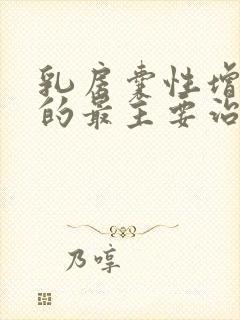 乳房囊性增
的最主要治
乃哼